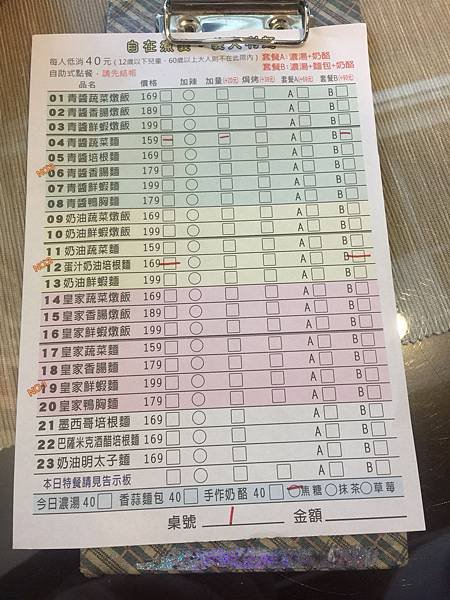 自在
每人低消40元(12歲以下兒童、60歲以上大人則不在此限內) 套餐A:濃湯+奶酪
自助式點餐，請先結帳 套餐B:濃湯+麵包+奶酪
品名 價格 加辣 加量(+20元) 焗烤(+30元) 套餐A(+60元) 套餐B(+90元)
01青醬蔬菜燉飯 169 A B
02青醬香腸燉飯 189 A B
03青醬鮮蝦燉飯 199 A B
04青醬蔬菜麵 159 A B
05青醬培根麵 169 A B
NO.
06青醬香腸麵 179 A B
07青醬鮮蝦麵 199 A B
08青醬鴨胸麵 179 A B
09奶油蔬菜燉飯 169 A B
10奶油鮮蝦燉飯 199 A B
11奶油蔬菜麵 159 A B
12蛋汁奶油培根麵 169 A B
13奶油鮮蝦麵 199 A B
14皇家蔬菜燉飯 169 A B
15皇家香腸燉飯 189 A B
16皇家鮮蝦燉飯 199 A B
17皇家蔬菜麵 159 A B
18皇家香腸麵 179 A B
19皇家鮮蝦麵 199 A B
20皇家鴨胸麵 179 A B
21墨西哥培根麵 169 A B
22巴薩米克酒醋培根麵 179 A B
23奶油明太子麵 169 A B
本日特餐請見告示板 A B
今日濃湯40 香蒜麵包40 手作奶酪40 焦糖 抹茶 草莓
桌號 1 金額